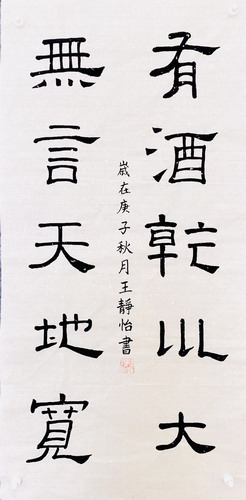 有酒乾川大
無言天地寬
歲在庚子秋月王靜怡書